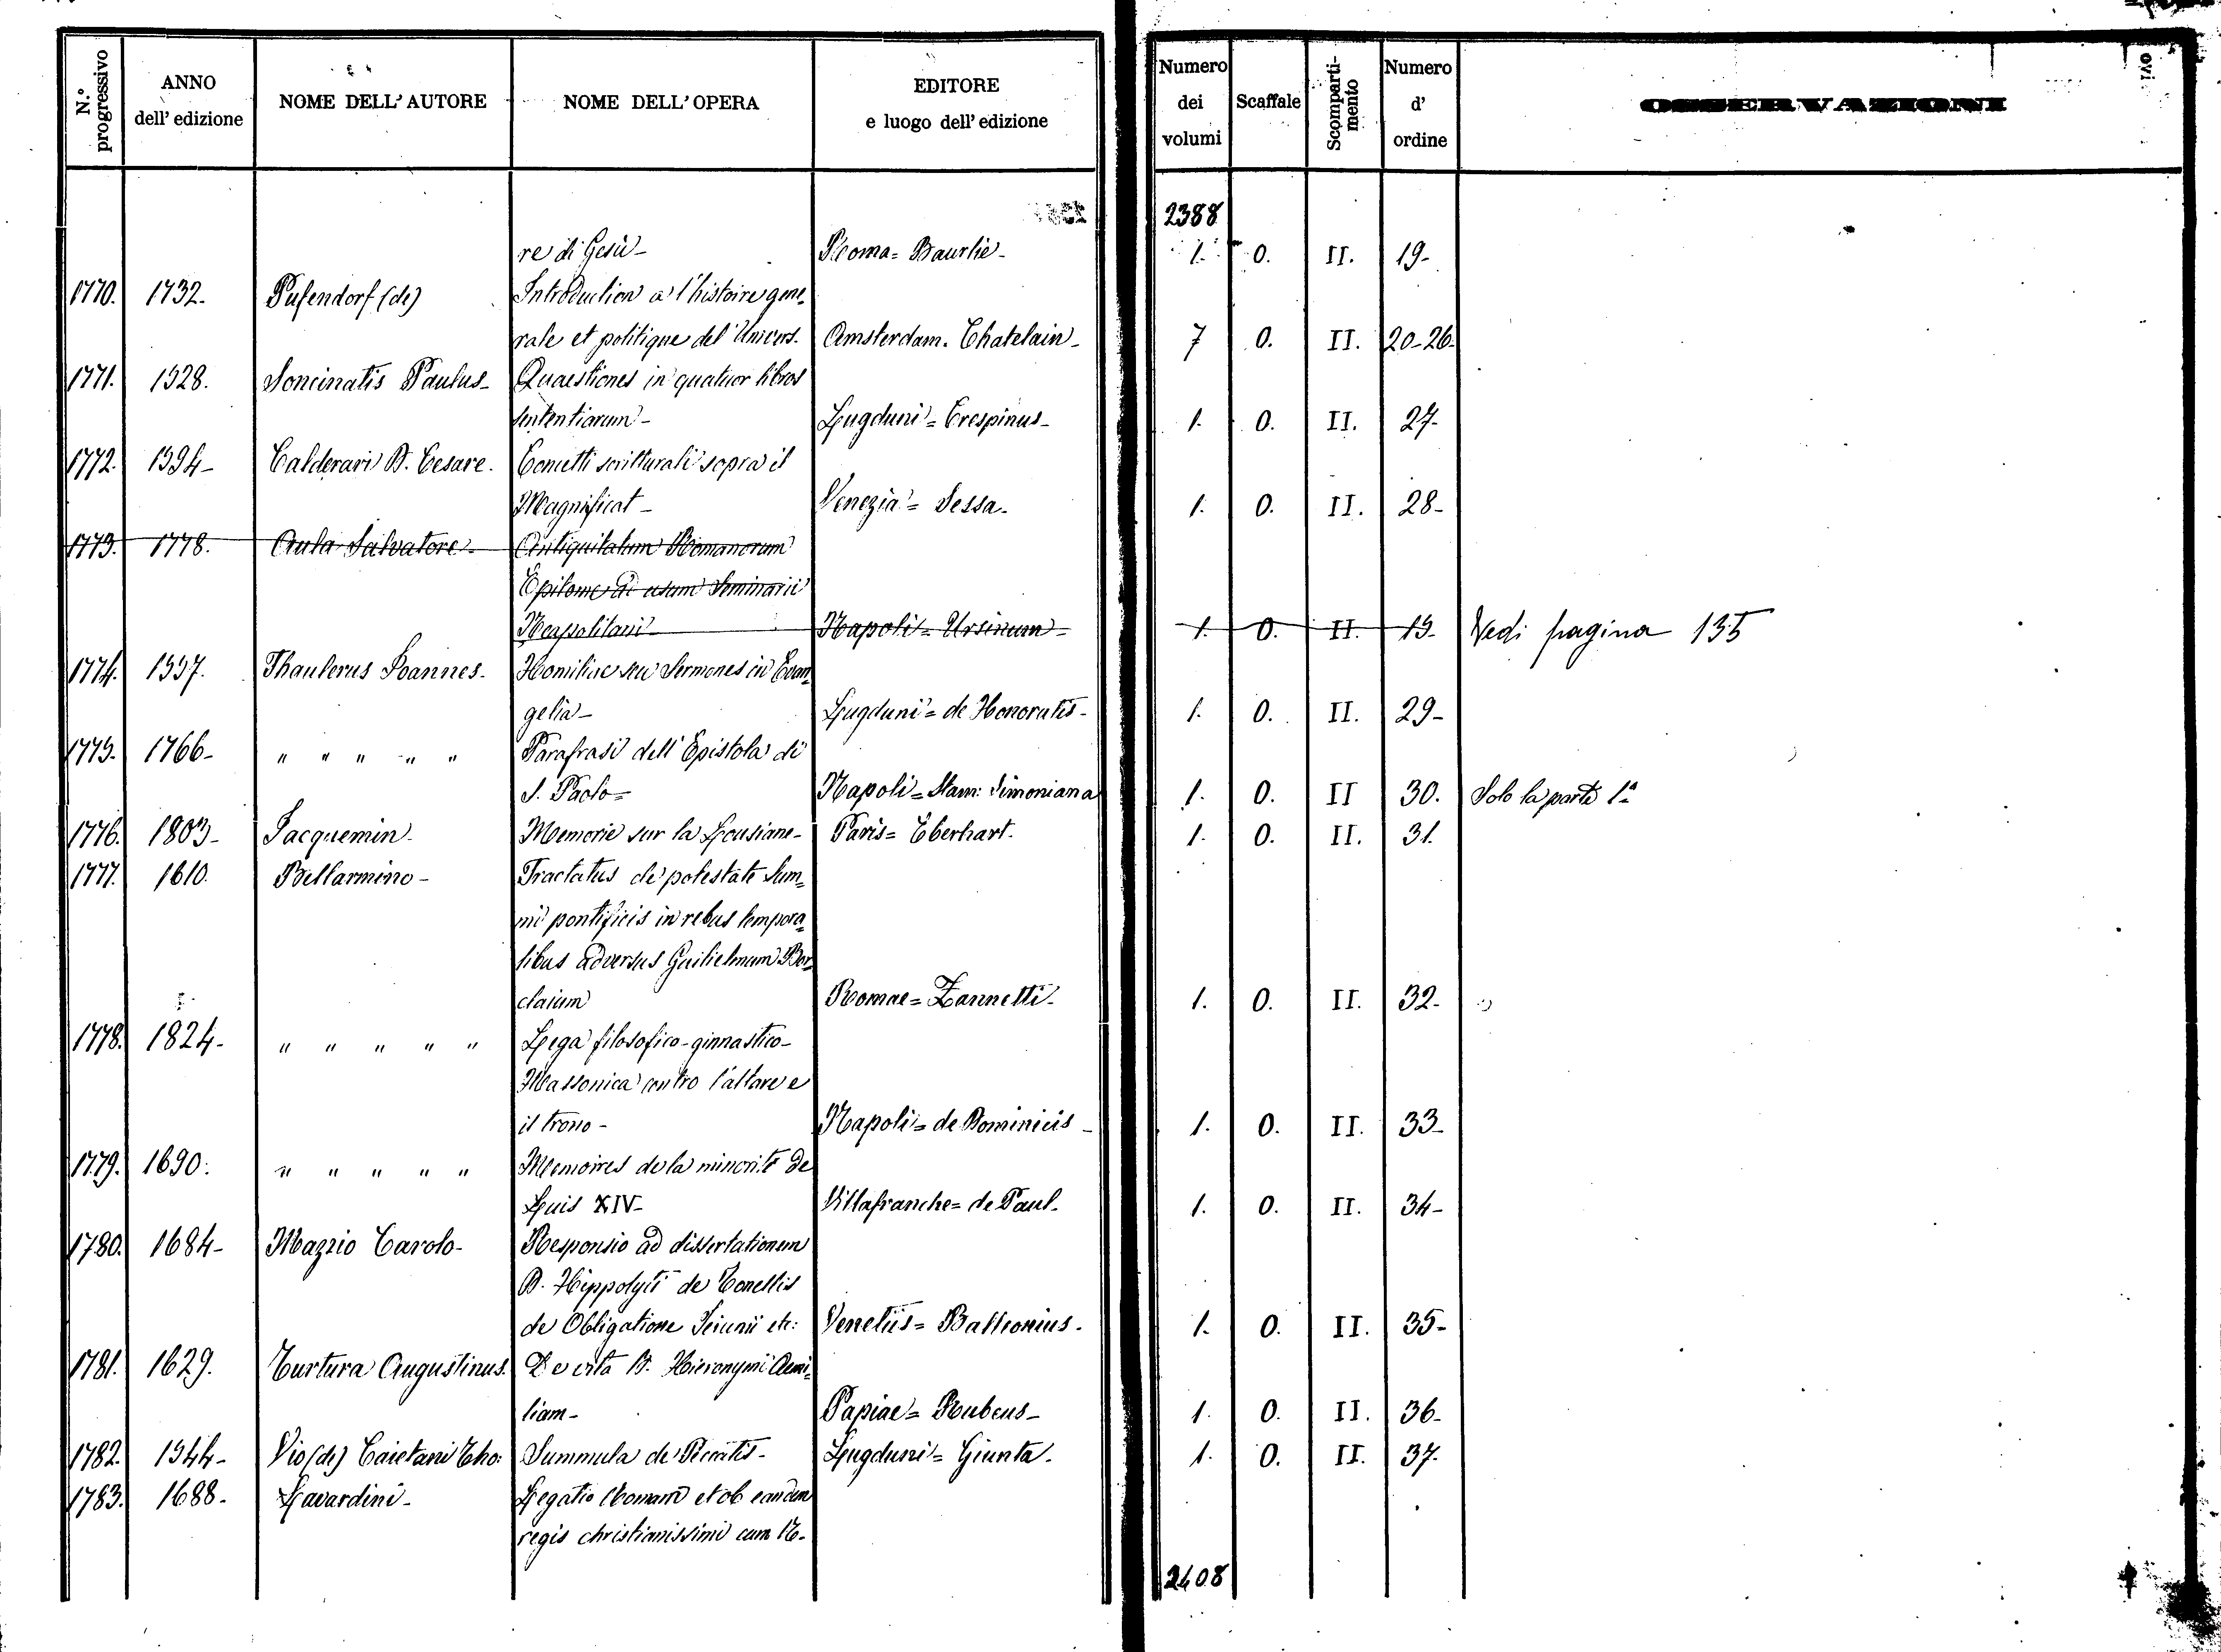 N.° progressivo | ANNO dell' edizione | NOME DELL' AUTORE | NOME DELL' OPERA | EDITORE e luogo dell' edizione | Numero dei volumi | Scaffale | Scomparti-mento | Numero d' ordine | OSSERVAZIONI
2388
re di Gesù- | Roma= Baurlie- | 1. | 0. | II. | 19-
1770. | 1732- | Pufendorf (de) | Introduction a l'histoire gene=
rale et politique del' Univers- | Amsterdam. Chatelain- | 7 | 0. | II. | 20-26.
1771. | 1528. | Soncinatis Paulus- | Quaestiones in quatuor libros
sententiarum- | Lugduni= Crespinus- | 1. | 0. | II. | 27-
1772. | 1594- | Calderari D. Cesare. | Concetti scritturali sopra il
Magnificat- | Venezia= Sessa- | 1. | 0. | II. | 28-
1773. | 1778. | Aula Salvatore- | Antiquitatum Romanorum
Epitome ad usum Seminarii
Neapolitani- | Napoli= Ursinum- | 1. | 0. | II. | 19- | Vedi pagina 135
1774. | 1557. | Thaulerus Joannes- | Homiliae seu Sermones in Evan=
gelia- | Lugduni= de Honoratis- | 1. | 0. | II. | 29-
1775. | 1766- | " " " " " | Parafrasi dell' Epistola di
S. Paolo= | Napoli= Stam: Simoniana | 1. | 0. | II | 30. | Solo la parte 1ª
1776. | 1803- | Jacquemin- | Memorie sur la Lousiane- | Paris= Eberhart. | 1. | 0. | II. | 31.
1777. | 1610. | Bellarmino- | Tractatus de potestate Sum=
mi pontificis in rebus tempora=
libus adversus Guilielmum Bar=
claium | Romae= Zannetti- | 1. | 0. | II. | 32-
1778. | 1824- | " " " " " | Lega filosofico-ginnastico-
Massonica contro l'altare e
il trono- | Napoli= de Dominicis- | 1. | 0. | II. | 33-
1779. | 1690. | " " " " " | Memoires de la minorité de
Luis XIV- | Villafranche= de Paul- | 1. | 0. | II. | 34-
1780. | 1684- | Mazzio Carolo- | Responsio ad dissertationem
D. Hippolyti de Tonellis
de Obligatione Jeiunii etc: | Venetiis= Balleonius. | 1. | 0. | II. | 35-
1781. | 1629. | Turtura Augustinus. | De vita B. Hieronymi Aemi=
liam- | Papiae= Rubeus- | 1. | 0. | II. | 36-
1782. | 1544- | Vio (de) Caietani Tho: | Summula de Peccatis- | Lugduni= Giunta. | 1. | 0. | II. | 37-
1783. | 1688- | Lavardini- | Legatio Romam et ob eandem
regis christianissimi cum
2408